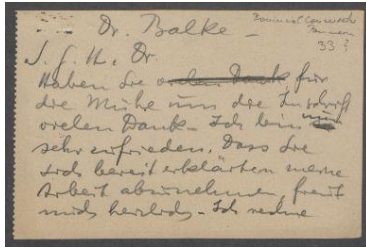 Dr. Balke -
33.?
S. g. H. Dr.
Haben Sie vielen Dank für
die Mühe um die
vielen Dank - Ich bin nun
sehr zufrieden. Dass Sie
sich bereit erklärten meine
Arbeit abzunehmen, freut
mich herzlich - Ich rechne